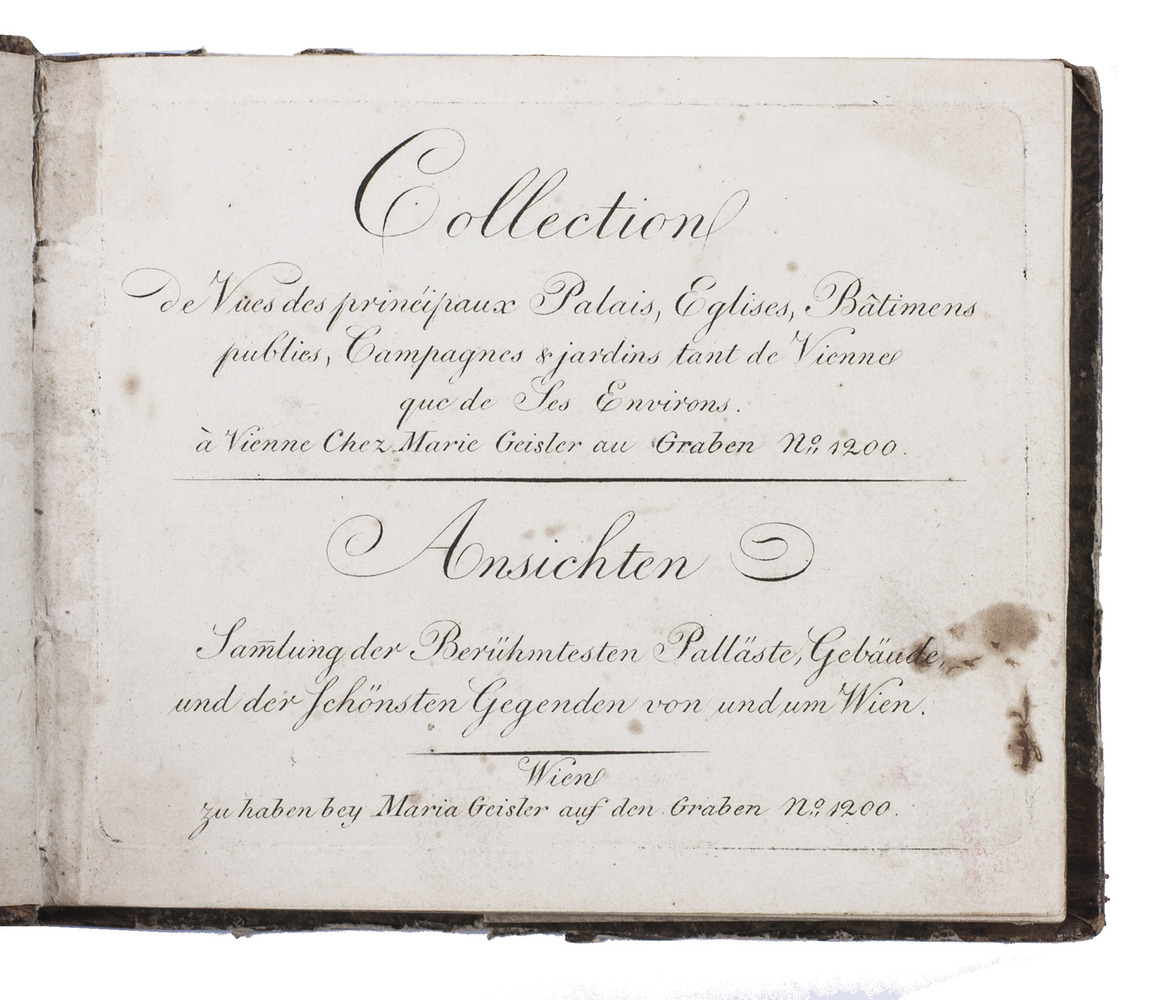 Collection
de Vües des principaux Palais, Eglises, Bâtimens
publics, Campagnes & jardins tant de Vienne
que de Ses Environs.
à Vienne Chez Marie Geisler au Graben No. 1200.
Ansichten
Sam̅lung der Berühmtesten Palläste, Gebäude,
und der Schönsten Gegenden von und um Wien.
Wien
zu haben bey Maria Geisler auf den Graben No. 1200.